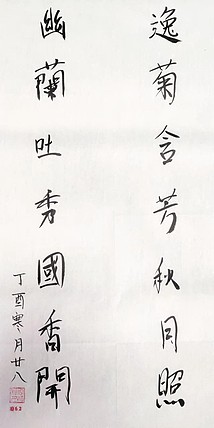 逸菊含芳秋月照
幽蘭吐秀國香開
丁酉寒月廿八